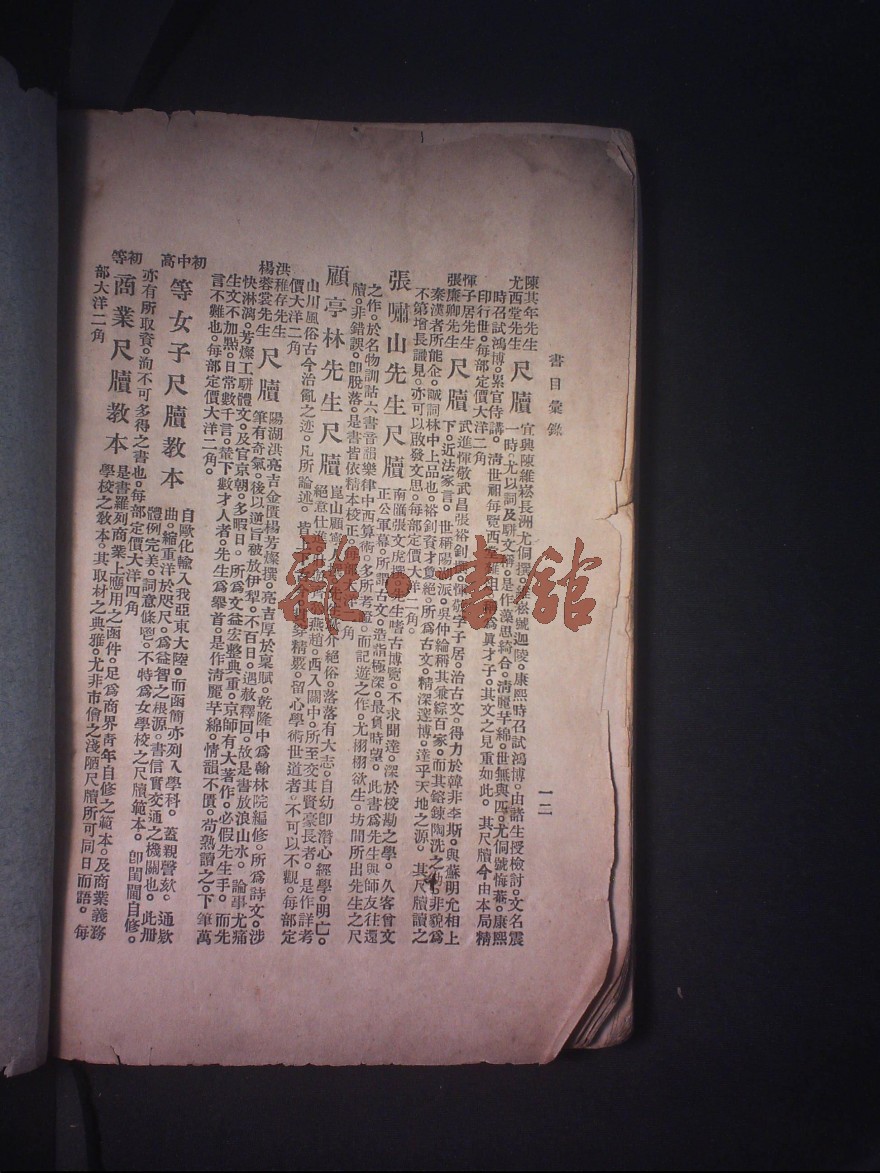 書目彙錄 一二
陳其年先生
尤西堂先生
尺牘 宜興陳維崧長洲尤侗撰 崧號迦陵。康熙時召試鴻博。由諸生授檢討。文名震
一時。尤以詞及駢文 。是作藻思綺合。淸麗芊綿。世無與匹。尤侗號悔菴。康熙
時召試鴻博。累官侍講。淸世祖每覽西堂雜俎。 爲眞才子。其文之見重如此。其尺牘今由本局精
印行世。每部定價大洋二角
惲子居先生
張廉卿先生
尺牘 武進惲敬武昌張裕釗撰。惲敬字子居。治古文。得力於韓非李斯。與蘇明允相上
下。近法家言。世稱陽湖派。吳仲綸稱其兼綜百家。而其鎔鍊陶洗之功。非貌爲
秦漢者所能企。誠詞林中上品也。裕釗資才負絕。所爲古文。精深邃博。達乎天地之源。其尺牘讀之
不第增長識見。亦可以啟發文思。每部定價大洋二角。
張嘯山先生尺牘 南滙張文虎撰。先生嗜古博覽。不求聞達。深於校勘之學。久客曾文
正公軍幕。所謂古文。造詣極深。最負時望。此書爲先生與師友往還
之作。於名物訓詁六書音韻樂律中西算術。多所考 。而記遊之作。尤栩栩欲生。坊間所出先生之尺
牘。非錯誤。卽脫落。是書皆依精本校正。每部大洋二角
顧亭林先生尺牘 崑山顧 絕俗。落落有大志。自幼卽潛心經學。明亡。
絕意仕進。 燕趙。西入關中。所至交其賢豪長者。是作詳考
山川風俗古今治亂之迹。凡所論述。皆上下 精嚴。留心學術世道者。不可以不觀。每部定
價大洋二角
洪稚存先生
楊蓉裳先生
尺牘 陽湖洪亮吉金匱楊芳燦撰。亮吉厚於稟賦。乾隆中爲翰林院編修。所爲詩文。涉
筆有奇氣。後以逆旨被放伊犁。不百日。遇赦釋回。故是書放浪山水。論事尤痛
快淋漓。芳燦工駢體文。及官京朝。多暇日。所爲文益宏整典重。京師有大著作。必假先生手。而先
生文不加點。日常數千言。輦下數才人者。先生爲舉首。是作淸麗芊綿。情韻不匱。苟熟讀之。下筆萬
言不難也。每部定價大洋二角。
初中高等女子尺牘敎本 自歐化輸入我亞東大陸。而函簡亦列入學科。蓋親謦欬。通款
曲。縮重洋於咫尺。爲益智之根源。書信實交通之機關也。此册
體例完美。詞意條鬯。不特爲女學校之尺牘範本。卽閨閫自修。
亦有所取資。洵不可多得之書也。每部定價大洋四角
初等商業尺牘敎本 是書羅列商業上應用之函件。足爲商界靑年自修之範本。及商業義務
學校之敎本。其取材之典雅。尤非市儈之淺陋尺牘所可同日而語。每
部大洋二角
雜·書館